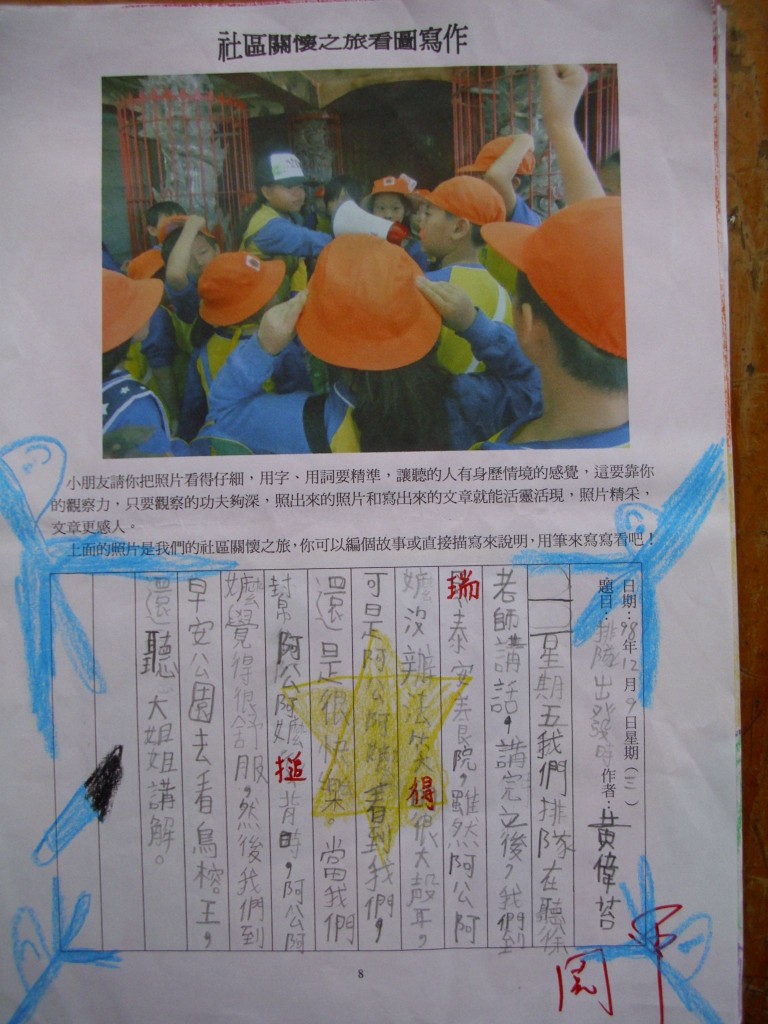 社區關懷之旅看圖寫作
小朋友請你把照片看得仔細，用字、用詞要精準，讓聽的人有身歷情境的感覺，這要靠你
的觀察力，只要觀察的功夫夠深，照出來的照片和寫出來的文章就能活靈活現，照片精采，
文章更感人。
上面的照片是我們的社區關懷之旅，你可以編個故事或直接描寫來說明，用筆來寫寫看吧！
日期：98年12月9日星期（三）
題目：排隊出發時 作者：黃偉
星期五我們排隊在聽徐
老師講話，講完之後，我們到
瑞泰安養院，雖然阿公阿
嬤沒辦法笑得很大聲，
可是阿公阿嬤看到我們，
還是很快樂。當我們
幫阿公阿嬤搥背時，阿公阿
嬤覺得很舒服，然後我們到
早安公園去看鳥榕王，
還聽大姐姐講解。
8
閱